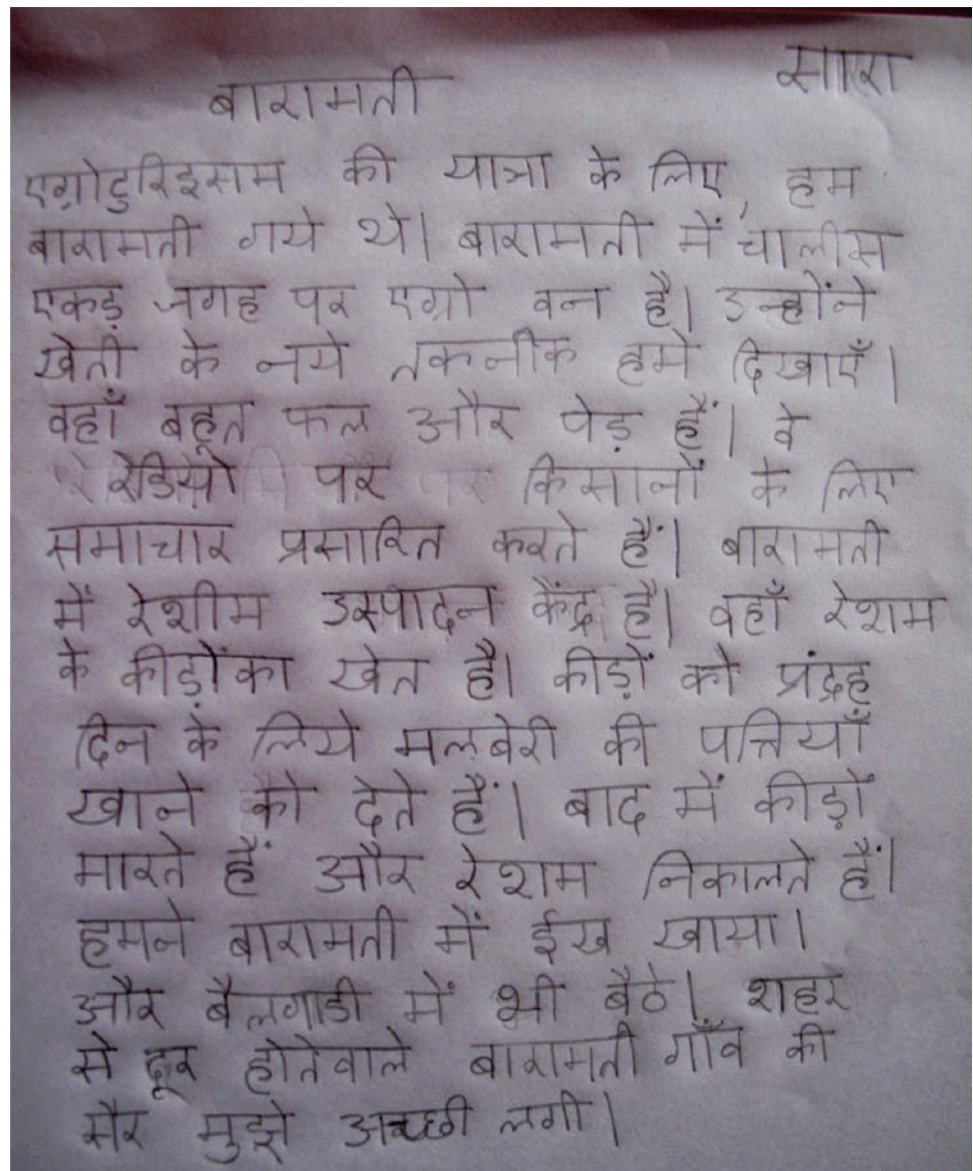 सारा
बारामती
एग्रोटुरिइसम की यात्रा के लिए, हम
बारामती गये थे। बारामती में चालीस
एकड़ जगह पर एग्रो वन है। उन्होंने
खेती के नये तकनीक हमे दिखाएँ।
वहाँ बहूत फल और पेड़ हैं। वे
रेडियो पर किसानों के लिए
समाचार प्रसारित करते हैं। बारामती
में रेशीम उत्पादन केंद्र है। वहाँ रेशम
के कीड़ोंका खेत है। कीड़ों को प्रंद्रह
दिन के लिये मलबेरी की पत्तियाँ
खाने को देते हैं। बाद में कीड़ों
मारते हैं और रेशम निकालते हैं।
हमने बारामती में ईख खाया।
और बैलगाडी में भी बैठे। शहर
से दूर होतेवाले बारामती गाँव की
सैर मुझे अच्छी लगी।